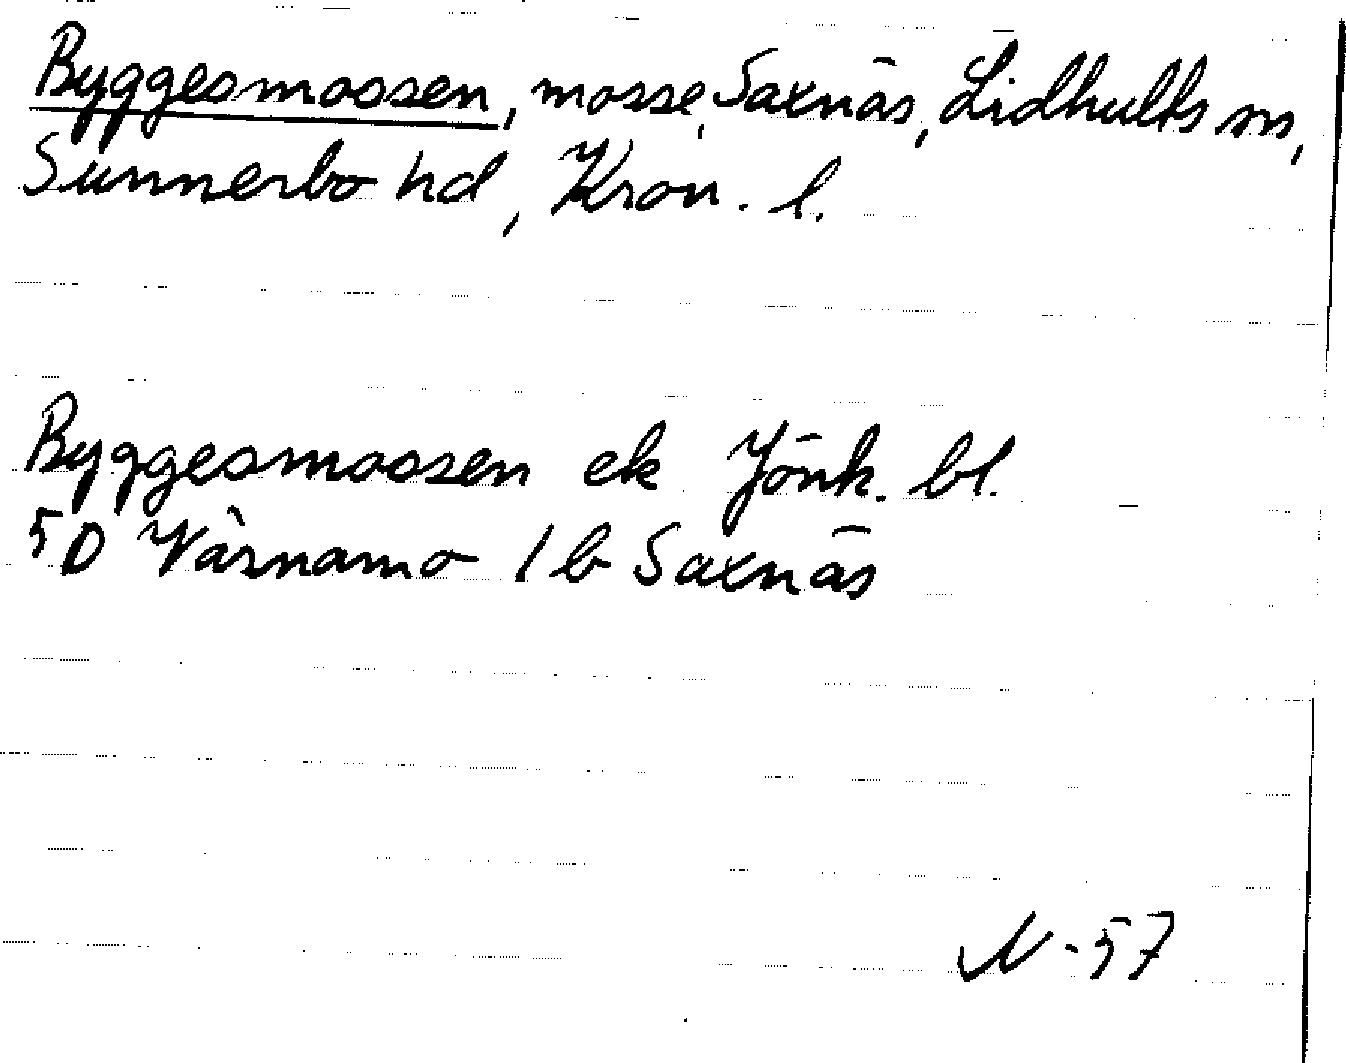 Byggesmossen, mosse, Saxnäs, Lidhults sn,
Sunnerbo hd, Kron. l.
Byggesmossen ek Jönk. bl.
5D Värnamo 1 b Saxnäs
N-57